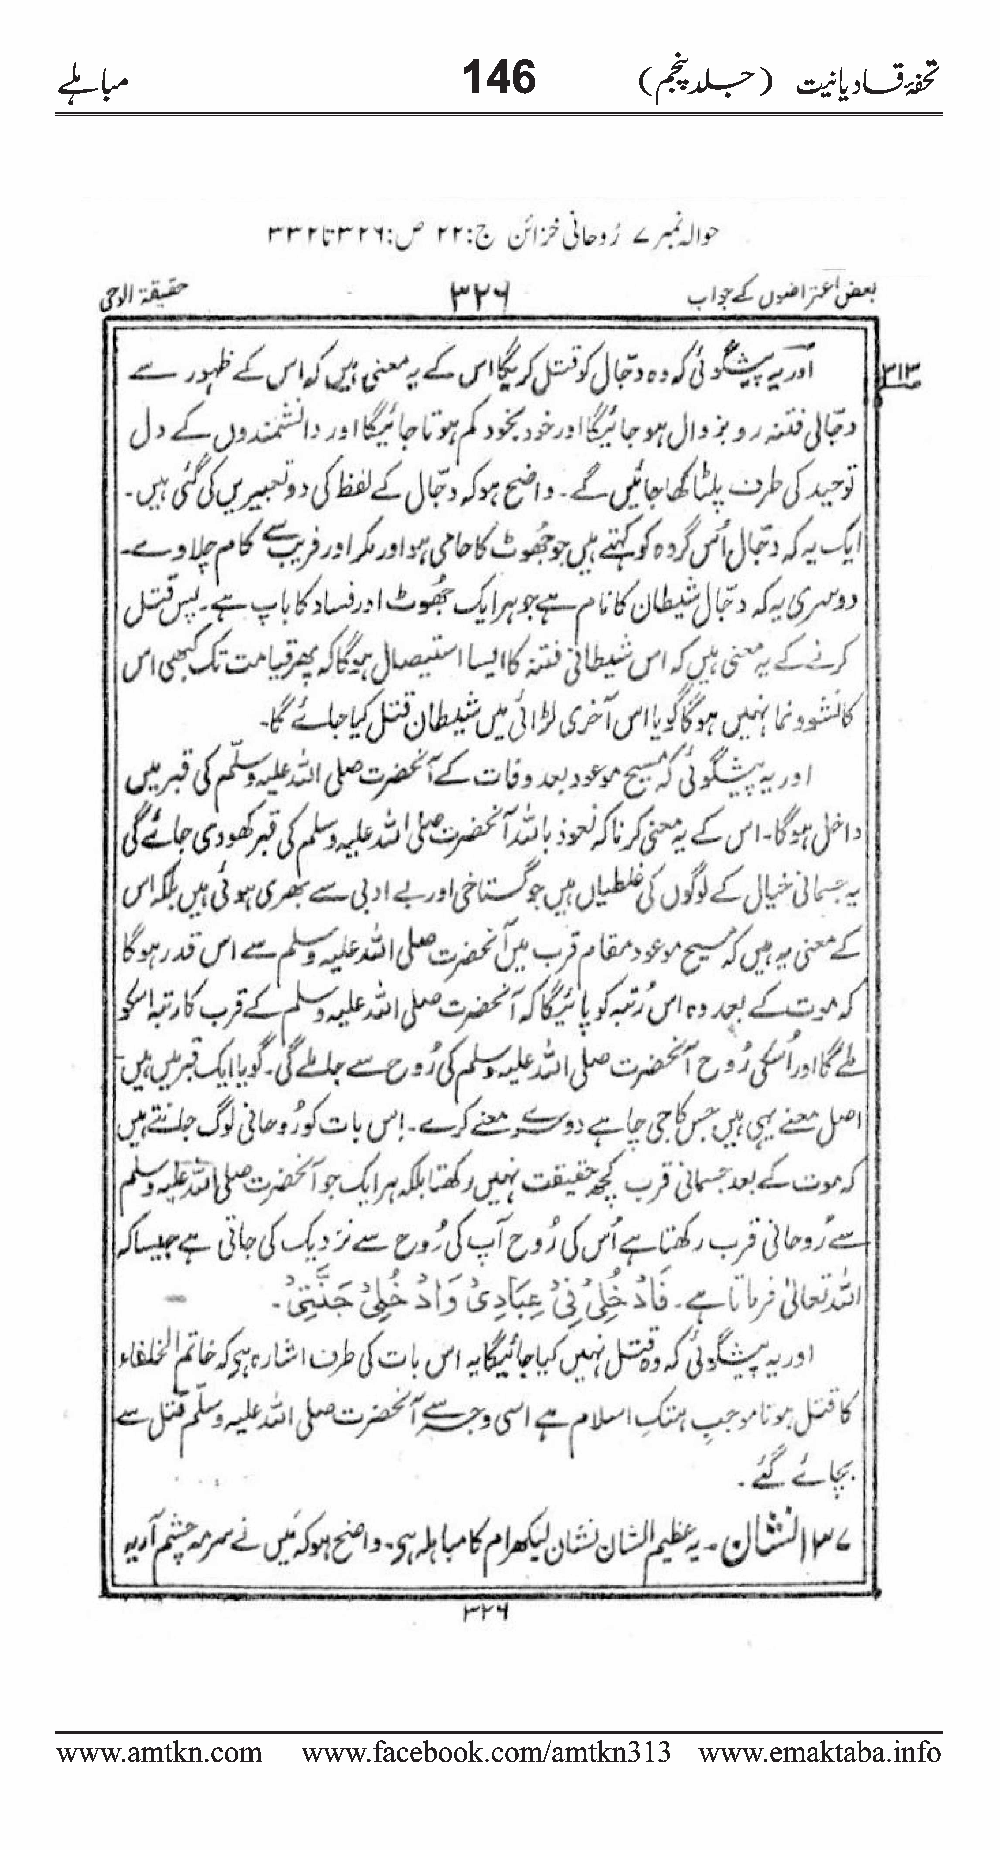 تحفۂ قادیانیت (جلد پنجم) 146 مباہلے
حوالہ نمبر ۷ رُوحانی خزائن ج:۲۲ ص:۳۲۶ تا ۳۳۲
بعض اعتراضوں کے جواب ۳۲۶ حقیقۃ الوحی
۳۱۳
اور یہ پیشگوئی کہ وہ دجّال کو قتل کریگا اس کے یہ معنی ہیں کہ اس کے ظہور سے
دجّالی فتنہ رو بزوال ہو جائیگا اور خود بخود کم ہوتا جائیگا اور دانشمندوں کے دل
توحید کی طرف پلٹا کھا جائیں گے۔ واضح ہو کہ دجّال کے لفظ کی دو تعبیریں کی گئی ہیں۔
ایک یہ کہ دجّال اُس گروہ کو کہتے ہیں جو جھُوٹ کا حامی ہو اور مکر اور فریب سے کام چلاوے۔
دوسری یہ کہ دجّال شیطان کا نام ہے جو ہر ایک جھُوٹ اور فساد کا باپ ہے۔ پس قتل
کرنے کے یہ معنی ہیں کہ اس شیطانی فتنہ کا ایسا استیصال ہوگا کہ پھر قیامت تک کبھی اس
کا نشوونما نہیں ہوگا گویا اس آخری لڑائی میں شیطان قتل کیا جائے گا۔
اور یہ پیشگوئی کہ مسیح موعود بعد وفات کے آنحضرت صلی اللہ علیہ وسلّم کی قبر میں
داخل ہوگا۔ اس کے یہ معنی کرنا کہ نعوذ باللہ آنحضرت صلی اللہ علیہ وسلم کی قبر کھودی جائے گی
یہ جسمانی خیال کے لوگوں کی غلطیاں ہیں جو گستاخی اور بے ادبی سے بھری ہوئی ہیں بلکہ اس
کے معنی یہ ہیں کہ مسیح موعود مقام قرب میں آنحضرت صلی اللہ علیہ وسلم سے اس قدر ہوگا
کہ موت کے بعد وہ اس رُتبہ کو پائیگا کہ آنحضرت صلی اللہ علیہ وسلم کے قرب کا رتبہ اسکو
ملے گا اور اُسکی رُوح آنحضرت صلی اللہ علیہ وسلم کی رُوح سے جا ملے گی۔ گویا ایک قبر میں ہیں
اصل معنے یہی ہیں جس کا جی چاہے دوسرے معنے کرے۔ اِس بات کو رُوحانی لوگ جانتے ہیں
کہ موت کے بعد جسمانی قرب کچھ حقیقت نہیں رکھتا بلکہ ہر ایک جو آنحضرت صلی اللہ علیہ وسلم
سے رُوحانی قرب رکھتا ہے اُس کی رُوح آپ کی رُوح سے نزدیک کی جاتی ہے جیسا کہ
اللہ تعالیٰ فرماتا ہے۔ فَادْخُلِیْ فِیْ عِبَادِیْ وَادْخُلِیْ جَنَّتِیْ۔
اور یہ پیشگوئی کہ وہ قتل نہیں کیا جائیگا یہ اس بات کی طرف اشارہ ہے کہ خاتم الخلفاء
کا قتل ہونا موجب ہتک اسلام ہے اسی وجہ سے آنحضرت صلی اللہ علیہ وسلّم قتل سے
بچائے گئے۔
۱۳۷ نشان۔ یہ عظیم الشان نشان لیکھرام کا مباہلہ ہے۔ واضح ہو کہ مَیں نے سرمہ چشم آریہ
۳۲۶
www.amtkn.com www.facebook.com/amtkn313 www.emaktaba.info